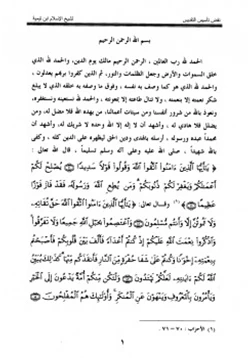 نقض تأسيس التقديس
لشيخ الإسلام ابن تيمية
بسم الله الرحمن الرحيم
الحمد لله رب العالمين، الرحمن الرحيم مالك يوم الدين، والحمد لله الذي
خلق السموات والأرض وجعل الظلمات والنور، ثم الذين كفروا بربهم يعدلون،
والحمد لله الذي هو كما وصف به نفسه، وفوق ما يصفه به خلقه،
شكر نعمته إلا بنعمه، ولا تنال طاعته إلا بمعونته، والحمد لله نستعينه ونستغفره،
ونعوذ بالله من شرور أنفسنا ومن سيئات أعمالنا، من يهده الله فلا مضل له، ومن
يضلل فلا هادي له، وأشهد أن لا إله إلا الله وحده لا شريك له، وأشهد أن
محمداً عبده ورسوله، أرسله بالهدى ودين الحق ليظهره على الدين كله، وكفى
بالله شهيداً، صلى الله عليه وعلى آله وسلم تسليماً، قال الله تعالى:
﴿يَا أَيُّهَا الَّذِينَ آمَنُوا اتَّقُوا اللَّهَ وَقُولُوا قَوْلًا سَدِيدًا يُصْلِحْ لَكُمْ
أَعْمَالَكُمْ وَيَغْفِرْ لَكُمْ ذُنُوبَكُمْ وَمَن يُطِعِ اللَّهَ وَرَسُولَهُ فَقَدْ فَازَ فَوْزًا
عَظِيمًا﴾ (١) وقال تعالى: ﴿يَا أَيُّهَا الَّذِينَ آمَنُوا اتَّقُوا اللَّهَ حَقَّ تُقَاتِهِ
وَلَا تَمُوتُنَّ إِلَّا وَأَنتُم مُّسْلِمُونَ وَاعْتَصِمُوا بِحَبْلِ اللَّهِ جَمِيعًا وَلَا تَفَرَّقُوا
وَاذْكُرُوا نِعْمَتَ اللَّهِ عَلَيْكُمْ إِذْ كُنتُمْ أَعْدَاءً فَأَلَّفَ بَيْنَ قُلُوبِكُمْ فَأَصْبَحْتُم
بِنِعْمَتِهِ إِخْوَانًا وَكُنتُمْ عَلَى شَفَا حُفْرَةٍ مِّنَ النَّارِ فَأَنقَذَكُم مِّنْهَا كَذَلِكَ يُبَيِّنُ اللَّهُ
لَكُمْ آيَاتِهِ لَعَلَّكُمْ تَهْتَدُونَ وَلْتَكُن مِّنكُمْ أُمَّةٌ يَدْعُونَ إِلَى الْخَيْرِ
وَيَأْمُرُونَ بِالْمَعْرُوفِ وَيَنْهَوْنَ عَنِ الْمُنكَرِ وَأُولَئِكَ هُمُ الْمُفْلِحُونَ
(١) الأحزاب: ٧٠ – ٧١.
١